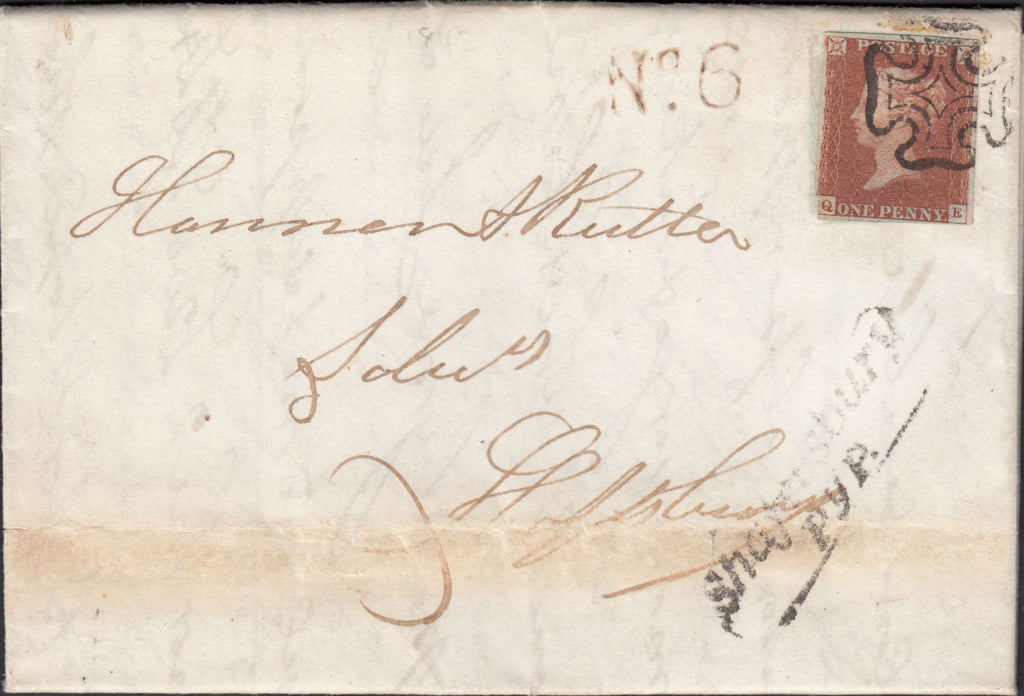 No. 6
POSTAGE
Q ONE PENNY E
Hannen & Rutter
Solrs
Shaftesbury
Shaftesbury
PyP.